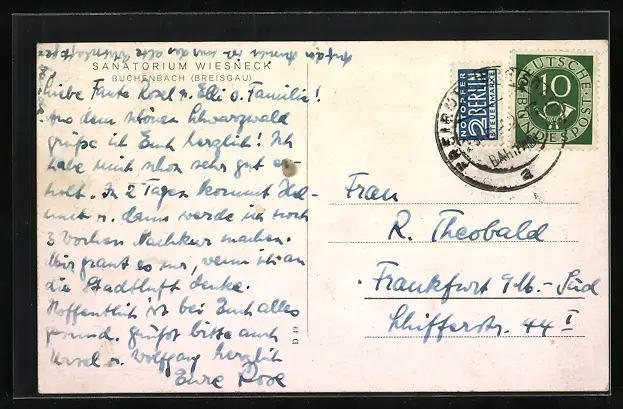 SANATORIUM WIESNECK
BUCHENBACH (BREISGAU)
Liebe Tante Rosel u. Elli o. Familie!
Aus dem schönen Schwarzwald
grüße ich Euch herzlich! Ich
habe mich schon sehr gut er-
holt. In 2 Tagen kommt Hel-
mut u. dann werde ich noch
3 Wochen Nachkur machen.
Mir graut es nur, wenn ich an
die Stadtluft denke.
Hoffentlich ist bei Euch alles
gesund. Grüßt bitte auch
Ursel u. Wolfgang herzlich
Eure Rose
D 49
NOTOPFER
2 BERLIN
STEUERMARKE
DEUTSCHE POST
BUNDESPOST
10
a
Frau
R. Theobald
Frankfurt a/M.-Süd
Schifferstr. 44 I